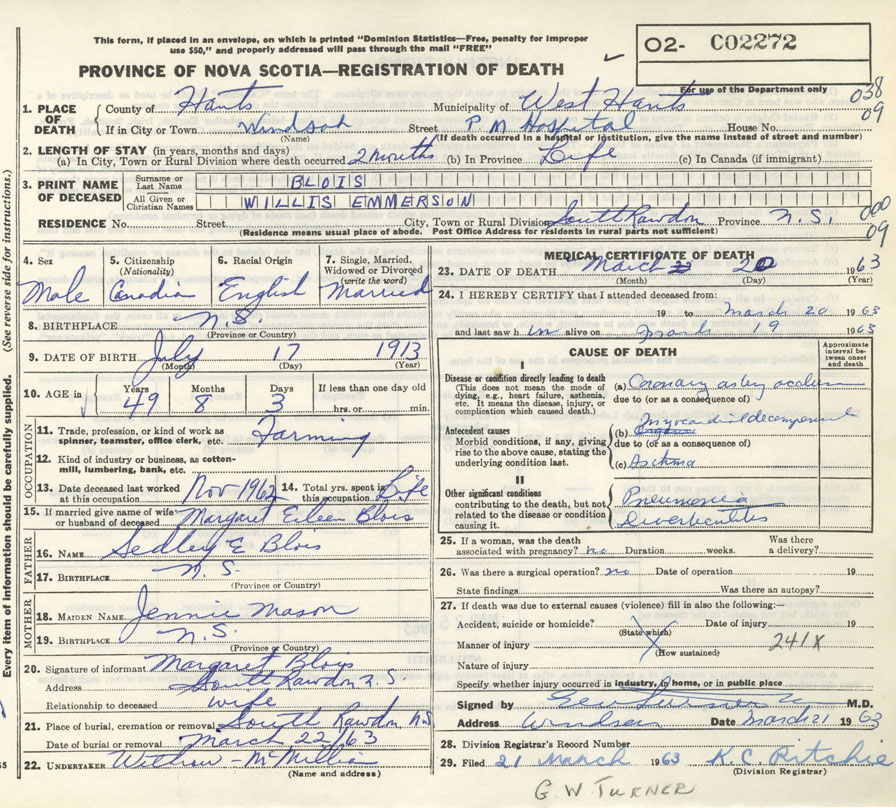 This form, if placed in an envelope, on which is printed "Dominion Statistics—Free, penalty for improper
use $50," and properly addressed will pass through the mail "FREE"
O2- C02272
For use of the Department only
PROVINCE OF NOVA SCOTIA—REGISTRATION OF DEATH
038
09
1. PLACE OF DEATH County of Hants Municipality of West Hants
If in City or Town Windsor Street P M Hospital House No.
(Name) (If death occurred in a hospital or institution, give the name instead of street and number)
2. LENGTH OF STAY (in years, months and days)
(a) In City, Town or Rural Division where death occurred 2 months (b) In Province Life (c) In Canada (if immigrant)
3. PRINT NAME OF DECEASED Surname or Last Name BLOIS
All Given or Christian Names WILLIS EMMERSON
000
09
RESIDENCE No. Street City, Town or Rural Division South Rawdon Province N.S.
(Residence means usual place of abode. Post Office Address for residents in rural parts not sufficient)
4. Sex 5. Citizenship (Nationality) 6. Racial Origin 7. Single, Married, Widowed or Divorced (write the word)
Male Canadian English Married
8. BIRTHPLACE N.S.
(Province or Country)
9. DATE OF BIRTH July 17 1913
(Month) (Day) (Year)
10. AGE in Years Months Days If less than one day old
49 8 3 hrs. or min.
OCCUPATION
11. Trade, profession, or kind of work as spinner, teamster, office clerk, etc. Farming
12. Kind of industry or business, as cotton-mill, lumbering, bank, etc.
13. Date deceased last worked at this occupation Nov 1962 14. Total yrs. spent in this occupation Life
15. If married give name of wife or husband of deceased Margaret Eileen Blois
FATHER
16. NAME Sedley E Blois
17. BIRTHPLACE N.S.
(Province or Country)
MOTHER
18. MAIDEN NAME Jennie Mason
19. BIRTHPLACE N.S.
(Province or Country)
20. Signature of informant Margaret Blois
Address South Rawdon N.S.
Relationship to deceased wife
21. Place of burial, cremation or removal South Rawdon NS
Date of burial or removal March 22/63
22. UNDERTAKER Withrow - McMillian
(Name and address)
MEDICAL CERTIFICATE OF DEATH
23. DATE OF DEATH March 20 1963
(Month) (Day) (Year)
24. I HEREBY CERTIFY that I attended deceased from:
19 to March 20 1963
and last saw h im alive on March 19 1963
CAUSE OF DEATH
Approximate interval between onset and death
I
Disease or condition directly leading to death
(This does not mean the mode of dying, e.g., heart failure, asthenia, etc. It means the disease, injury, or complication which caused death.)
(a) Coronary
due to (or as a consequence of)
Antecedent causes
Morbid conditions, if any, giving rise to the above cause, stating the underlying condition last.
(b) myocardial
due to (or as a consequence of)
(c) Asthma
II
Other significant conditions contributing to the death, but not related to the disease or condition causing it.
Pneumonia
Diverticulitis
25. If a woman, was the death associated with pregnancy? no Duration weeks. Was there a delivery?
26. Was there a surgical operation? no Date of operation 19
State findings Was there an autopsy?
27. If death was due to external causes (violence) fill in also the following:—
Accident, suicide or homicide? Date of injury 19
(State which)
Manner of injury 241X
(How sustained)
Nature of injury
Specify whether injury occurred in industry, in home, or in public place
Signed by M.D.
Address Windsor Date March 21 1963
28. Division Registrar's Record Number
29. Filed 21 March 1963 K C Ritchie
(Division Registrar)
G. W TURNER
(See reverse side for instructions.)
Every item of information should be carefully supplied.